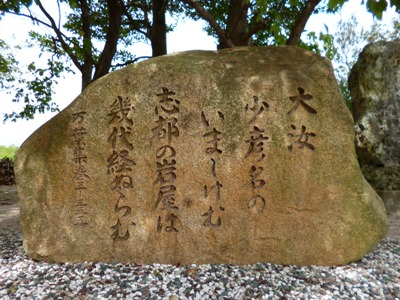 大汝
少彦名の
いましけむ
志都の岩屋は
幾代経ぬらむ
万葉集巻三・三五五